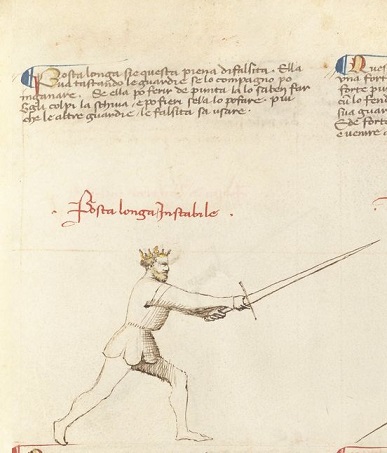 Posta longa sie questa piena di falsita. Ella
va tastando le guardie se lo compagno po
inganare. Se ella po ferir de punta la lo saben far
Egli colpi la schiva e po fieri sela lo po fare. piu
che le altre guardie le falsita sa usare.
Posta longa Instabile.
Ques
una fort
forte pu
cu lo fen
sua guar
Ede fort
e venire